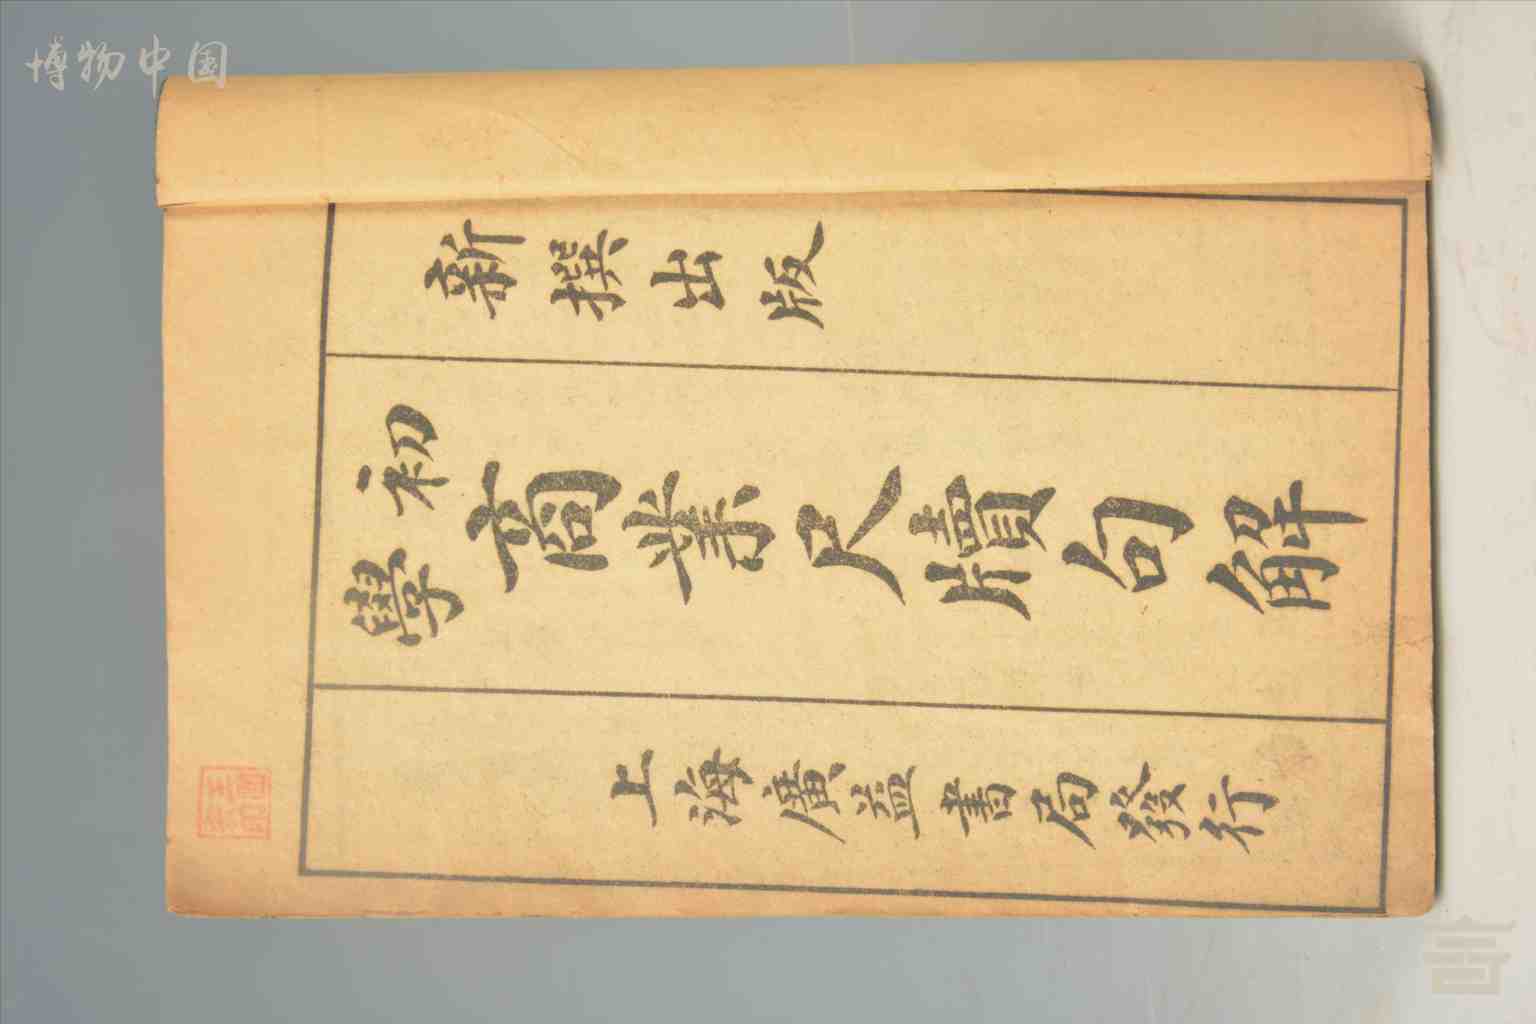 博物中国
新撰出版
初學
商業尺牘句解
上海廣益書局發行